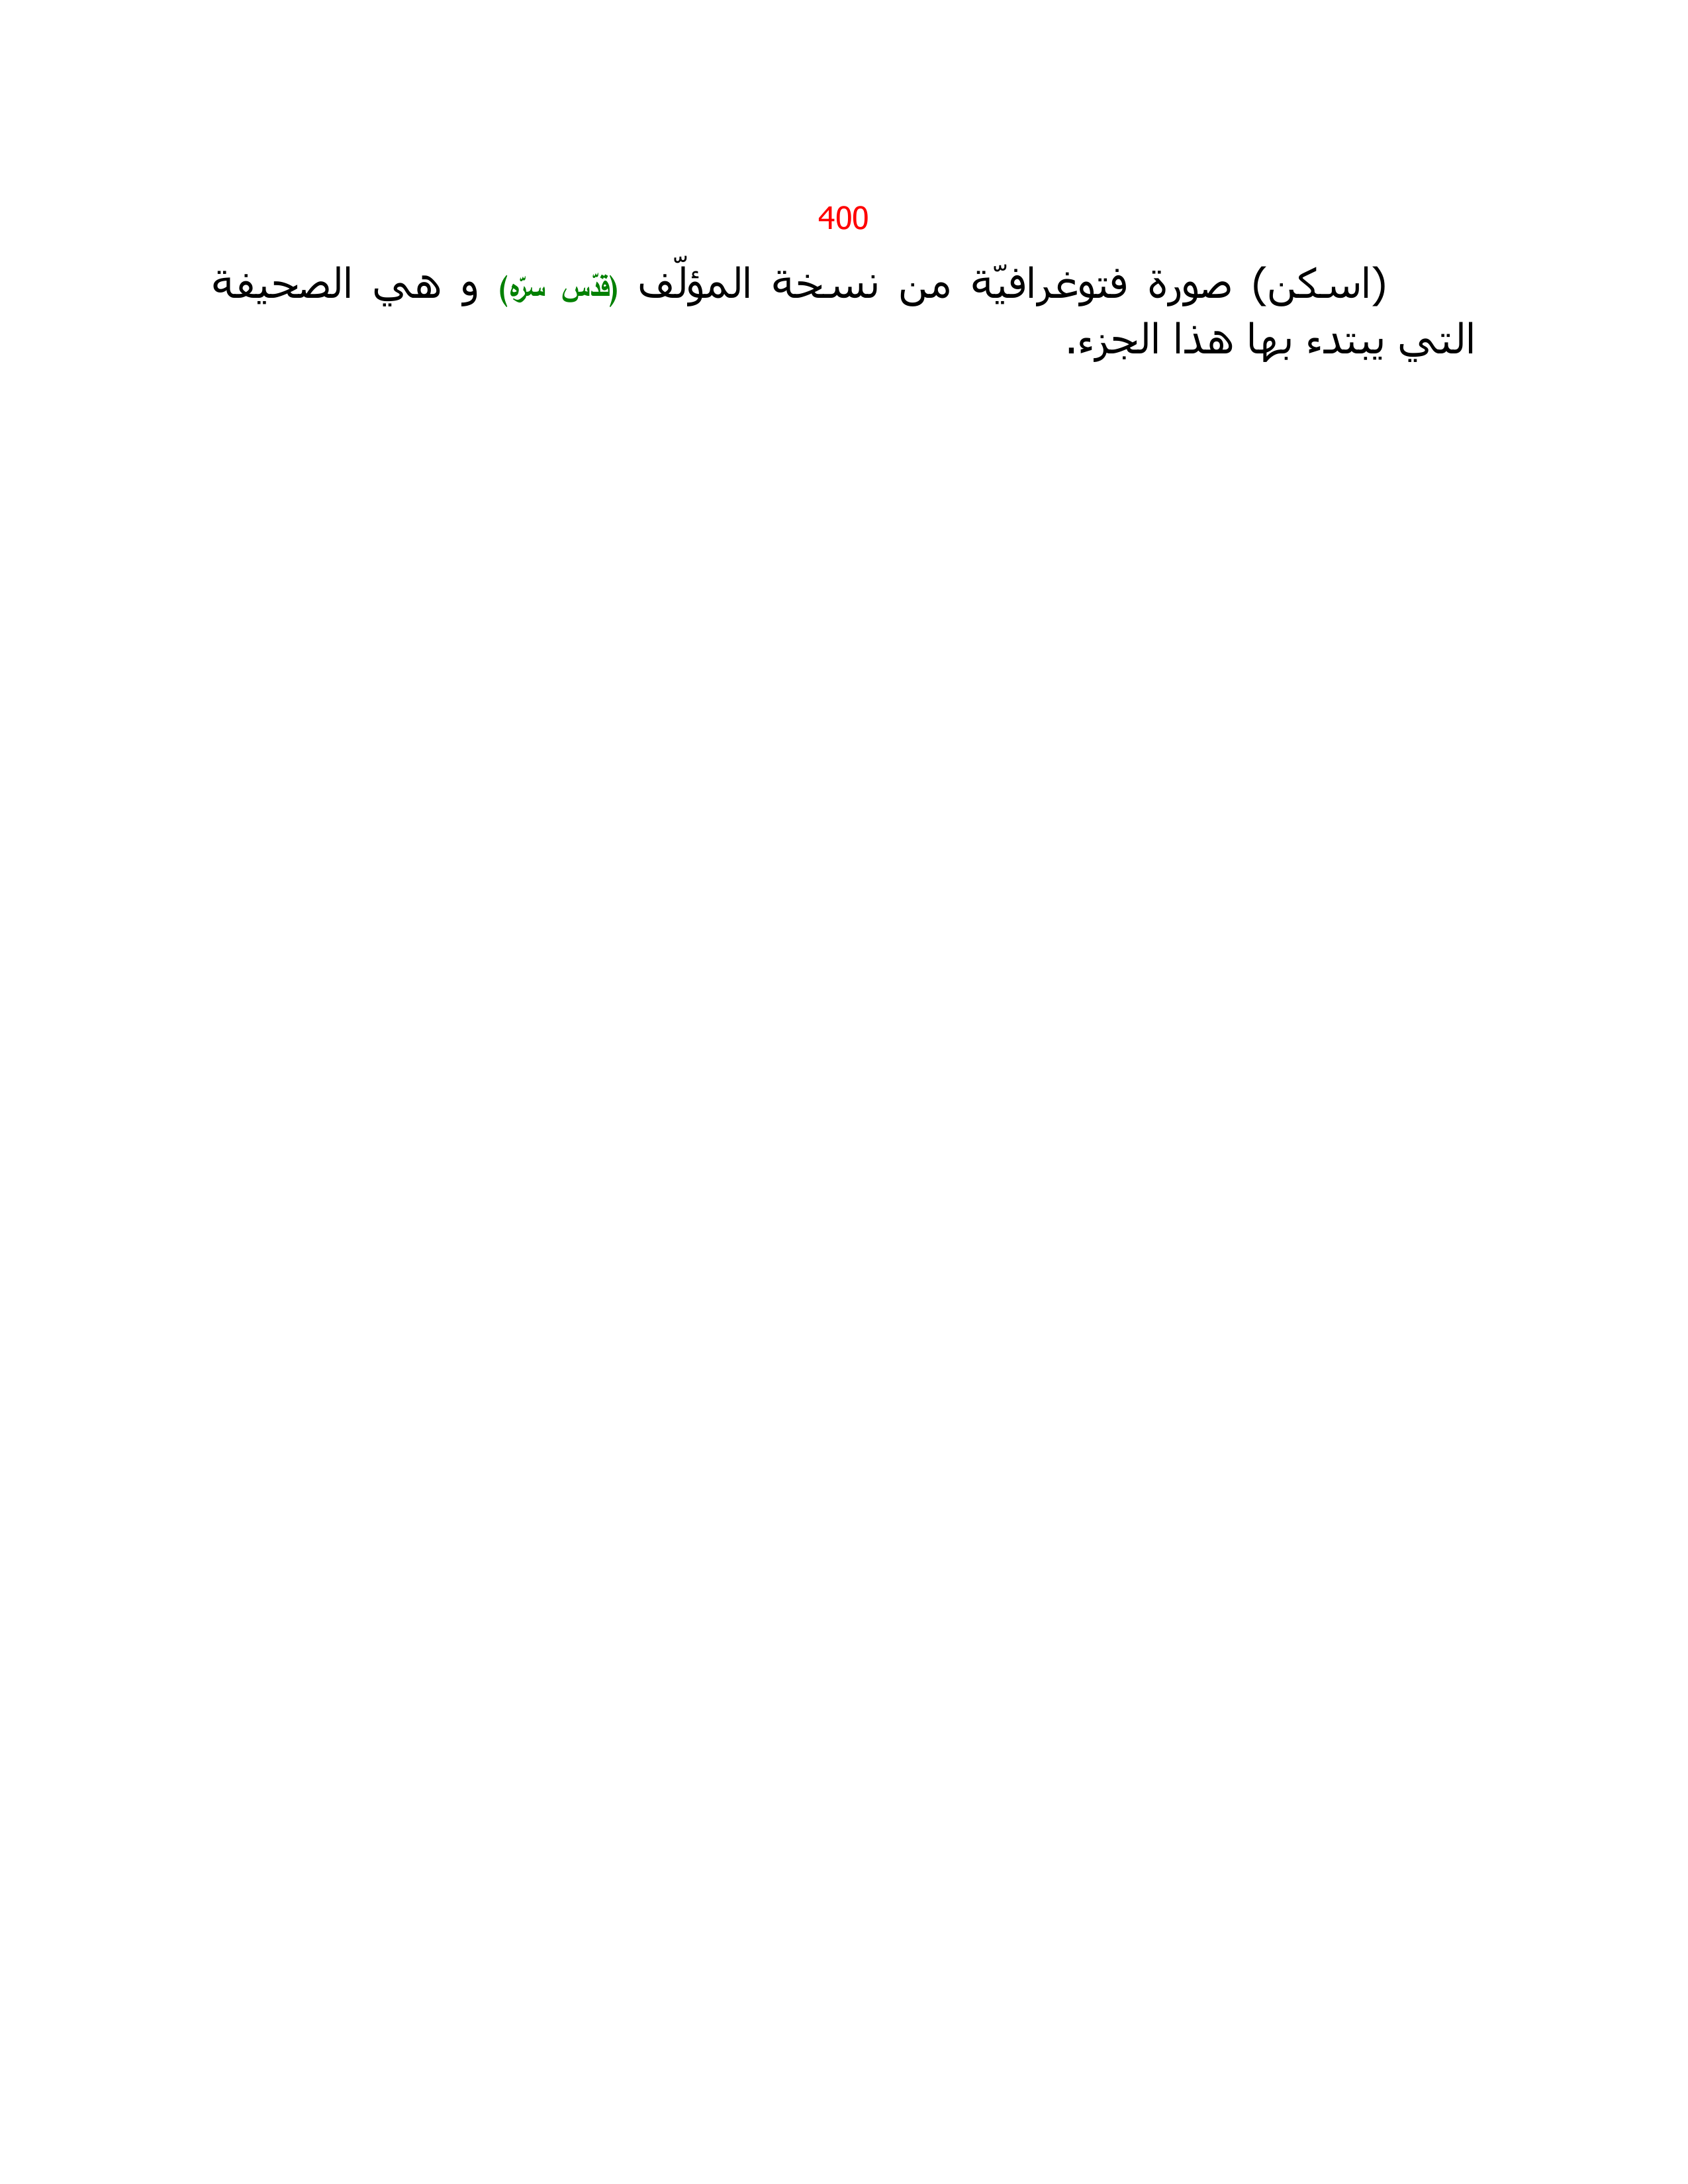 400
(اسكن) صورة فتوغرافيّة من نسخة المؤلّف (قدّس سرّه) و هي الصحيفة
التي يبتدء بها هذا الجزء.